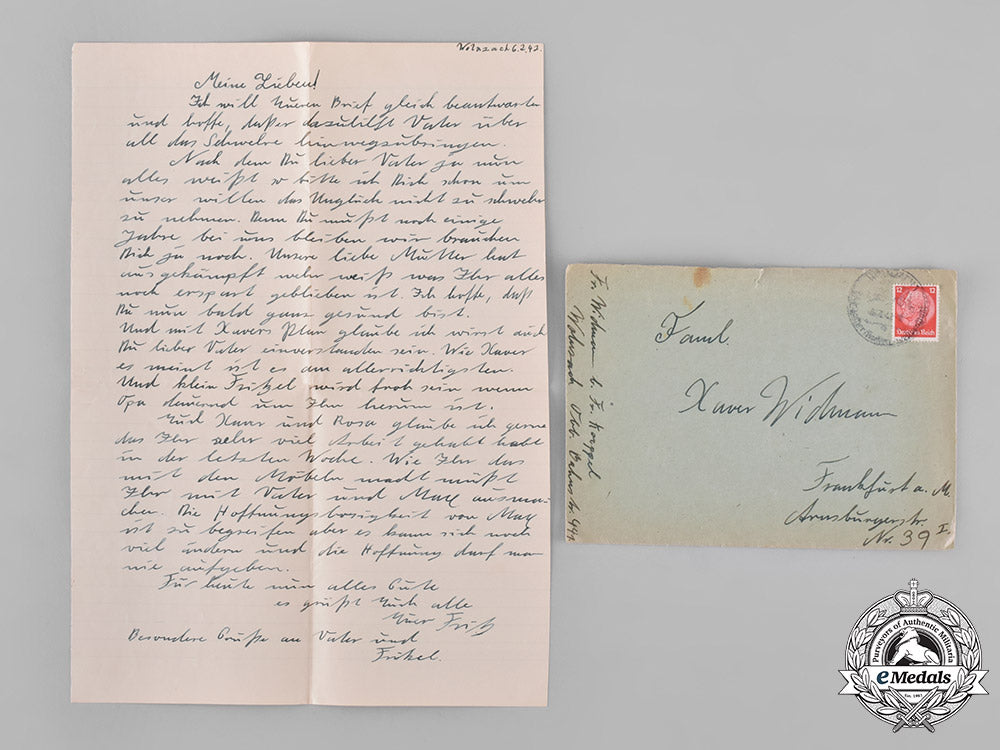 Wolnzach 6.2.42.
Meine Lieben!
Ich will Eueren Brief gleich beantworten
und hoffe, daß er dazu hilft Vater über
all das Schwere hinwegzubringen.
Nach dem Du lieber Vater ja nun
alles weißt so bitte ich Dich schon um
unser willen das Unglück nicht zu schwer
zu nehmen. Denn Du mußt noch einige
Jahre bei uns bleiben wir brauchen
Dich ja noch. Unsere liebe Mutter hat
ausgekämpft weher weiß was Ihr alles
noch erspart geblieben ist. Ich hoffe, daß
Du nun bald ganz gesund bist.
Und mit Xavers Plan glaube ich wirst auch
Du lieber Vater einverstanden sein. Wie Xaver
es meint ist es am allerrichtigsten.
Und klein Fritzel wird froh sein wenn
Opa dauernd um Ihn herum ist.
Euch Xaver und Rosa glaube ich gerne
das Ihr sehr viel Arbeit gehabt habt
in der letzten Woche. Wie Ihr das
mit den Möbeln macht müßt
Ihr mit Vater und Max ausma-
chen. Die Hoffnungslosigkeit von Max
ist zu begreifen aber es kann sich noch
viel ändern und die Hoffnung darf man
nie aufgeben.
Für heute nun alles Gute
es grüßt Euch alle
Euer Fritz
Besondere Grüße an Vater und
Fritzel.
Fr. Widmann b. Fr. Hoeppel
Wolnzach Obb. Bahnstr. 44
12 12
Deutsches Reich
Faml.
Xaver Widmann
Frankfurt a. M.
Arnsburgerstr.
Nr. 39 I
Purveyors of Authentic Militaria
eMedals